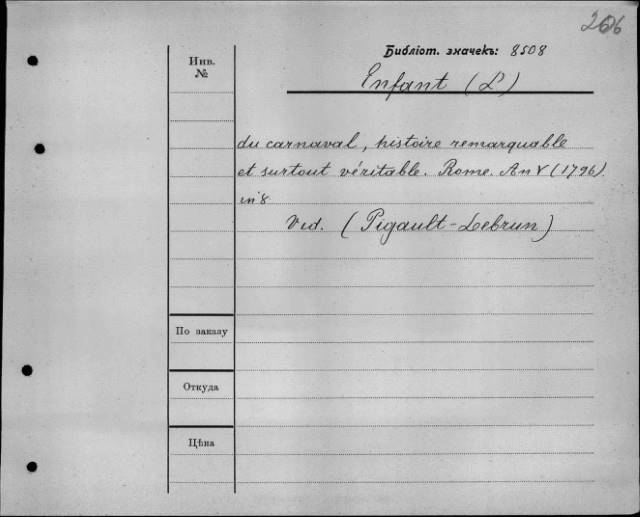 266
Библіот. значекъ: 8508
Инв.
№
Enfant (L')
du carnaval, histoire remarquable
et surtout véritable. Rome. An V (1796).
in 8
Vid. (Pigault-Lebrun)
По заказу
Откуда
Цѣна